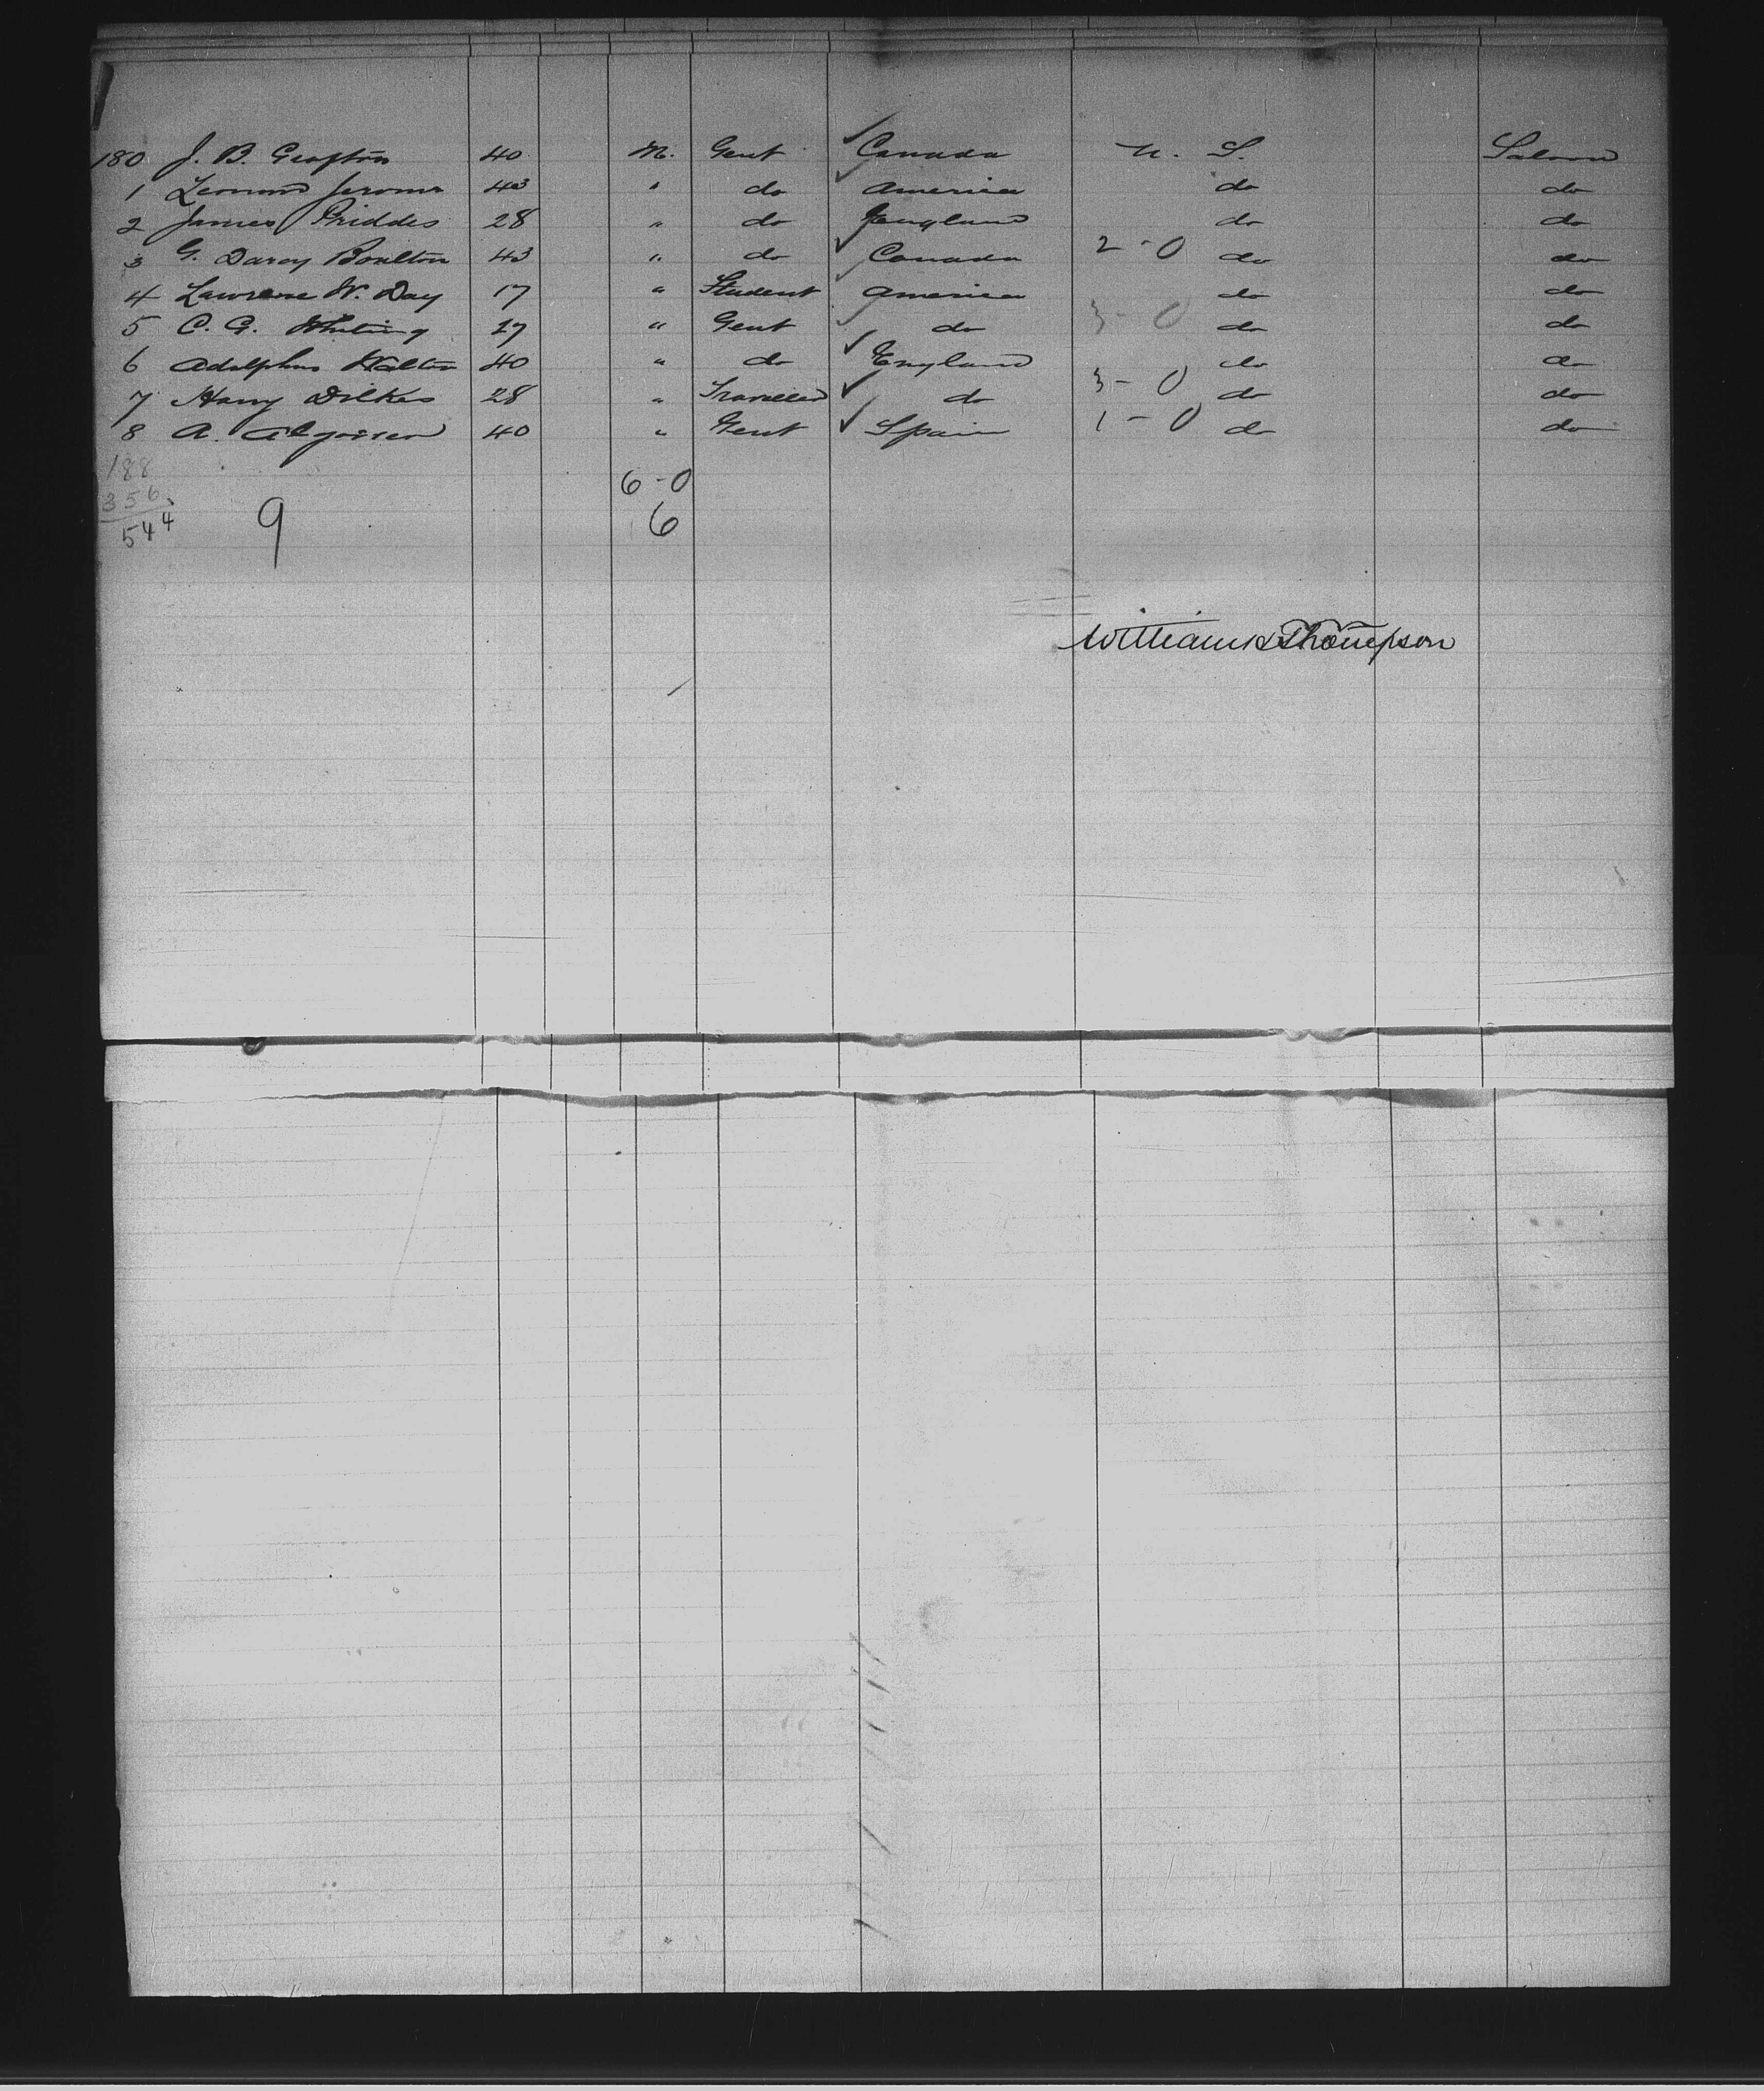 180 J. B. Grafton 40 M. Gent Canada U. S. Saloon
1 Leonard Jerome 43 " do America do do
2 James Priddes 28 " do England do do
3 G. Darcy Boulton 43 " do Canada 2-0 do do
4 Lawrence W. Day 17 " Student America do do
5 C. G. Whiting 27 " Gent do 3-0 do do
6 Adolphus Walton 40 " do England do do
7 Harry Dilkes 28 " Traveller do 3-0 do do
8 A. 40 " Gent Spain 1-0 do do
188
356
544
9
6-0
6
William Thompson